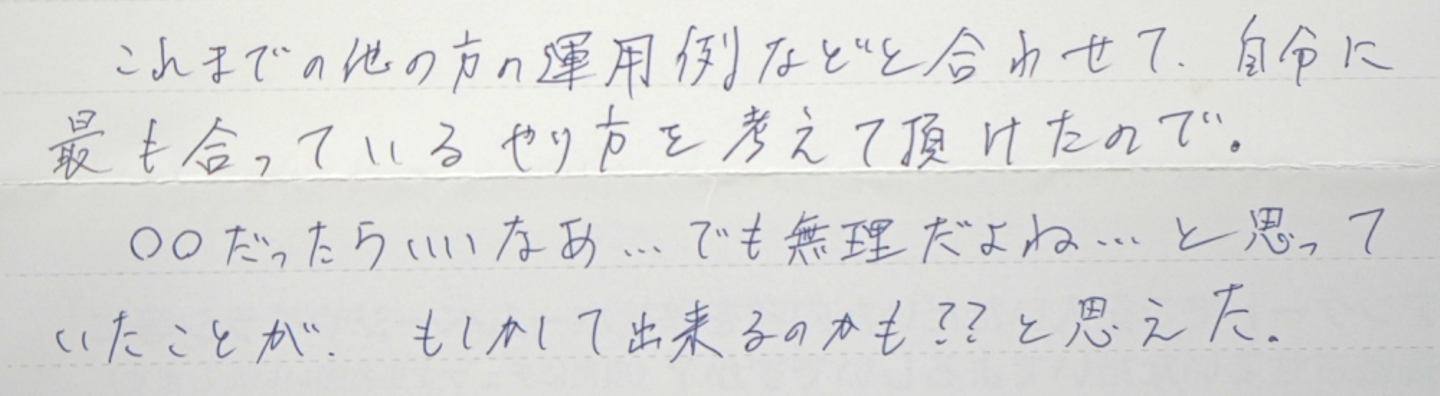 これまでの他の方の運用例などと合わせて、自分に
最も合っているやり方を考えて頂けたので。
○○だったらいいなあ…でも無理だよね…と思って
いたことが、もしかして出来るのかも??と思えた。